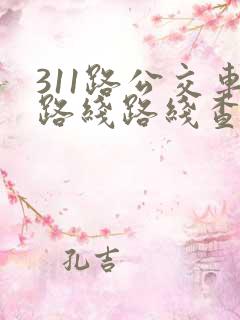 311路公交车
路线路线查
孔吉